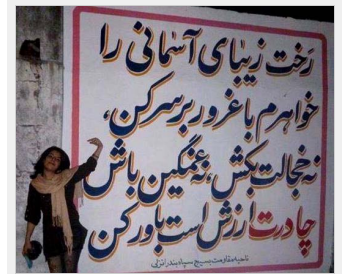 رَخت زیبای آسمانی را
خواهرم با غرور بر سر کن،
نه خجالت بکش، نه غمگین باش
چادرت ارزش است باور کن
ناحیه مقاومت بسیج سپاه بندرانزلی